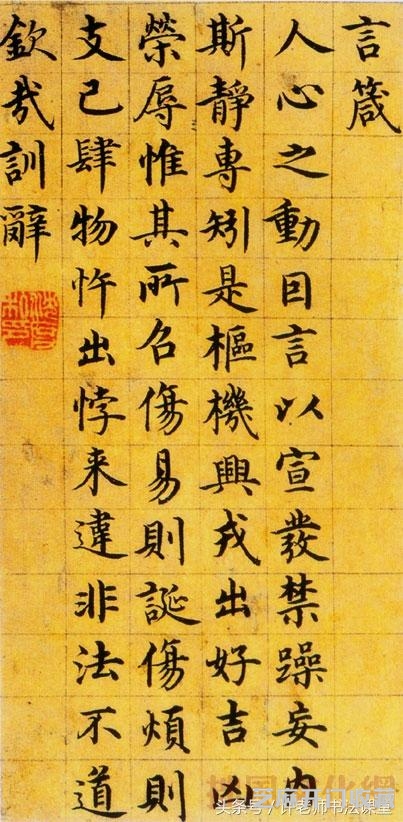 言箴
人心之動因言以宣發禁躁妄內
斯靜專矧是樞機興戎出好吉凶
榮辱惟其所召傷易則誕傷煩則
支己肆物忤出悖来違非法不道
欽哉訓辭
头条号／许老师书法课堂